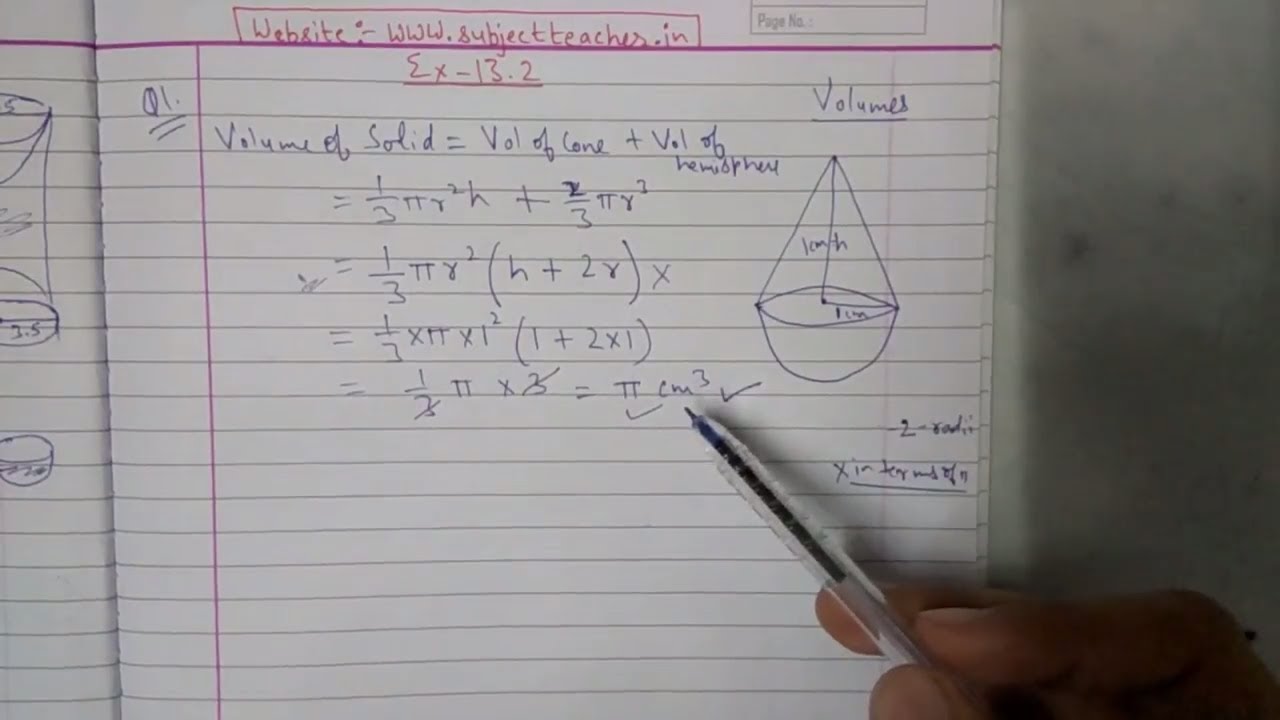 Page No.:
Website:- www.subjectteacher.in
Ex-13.2
Q1.
Volumes
Volume of Solid = Vol of Cone + Vol of hemisphere
= 1/3 πr²h + 2/3 πr³
= 1/3 πr² (h + 2r) x
= 1/3 × π × 1² (1 + 2×1)
= 1/3 π × 3 = π cm³ ✓
1cm h
1cm
2-radii
x in terms of π
3.5